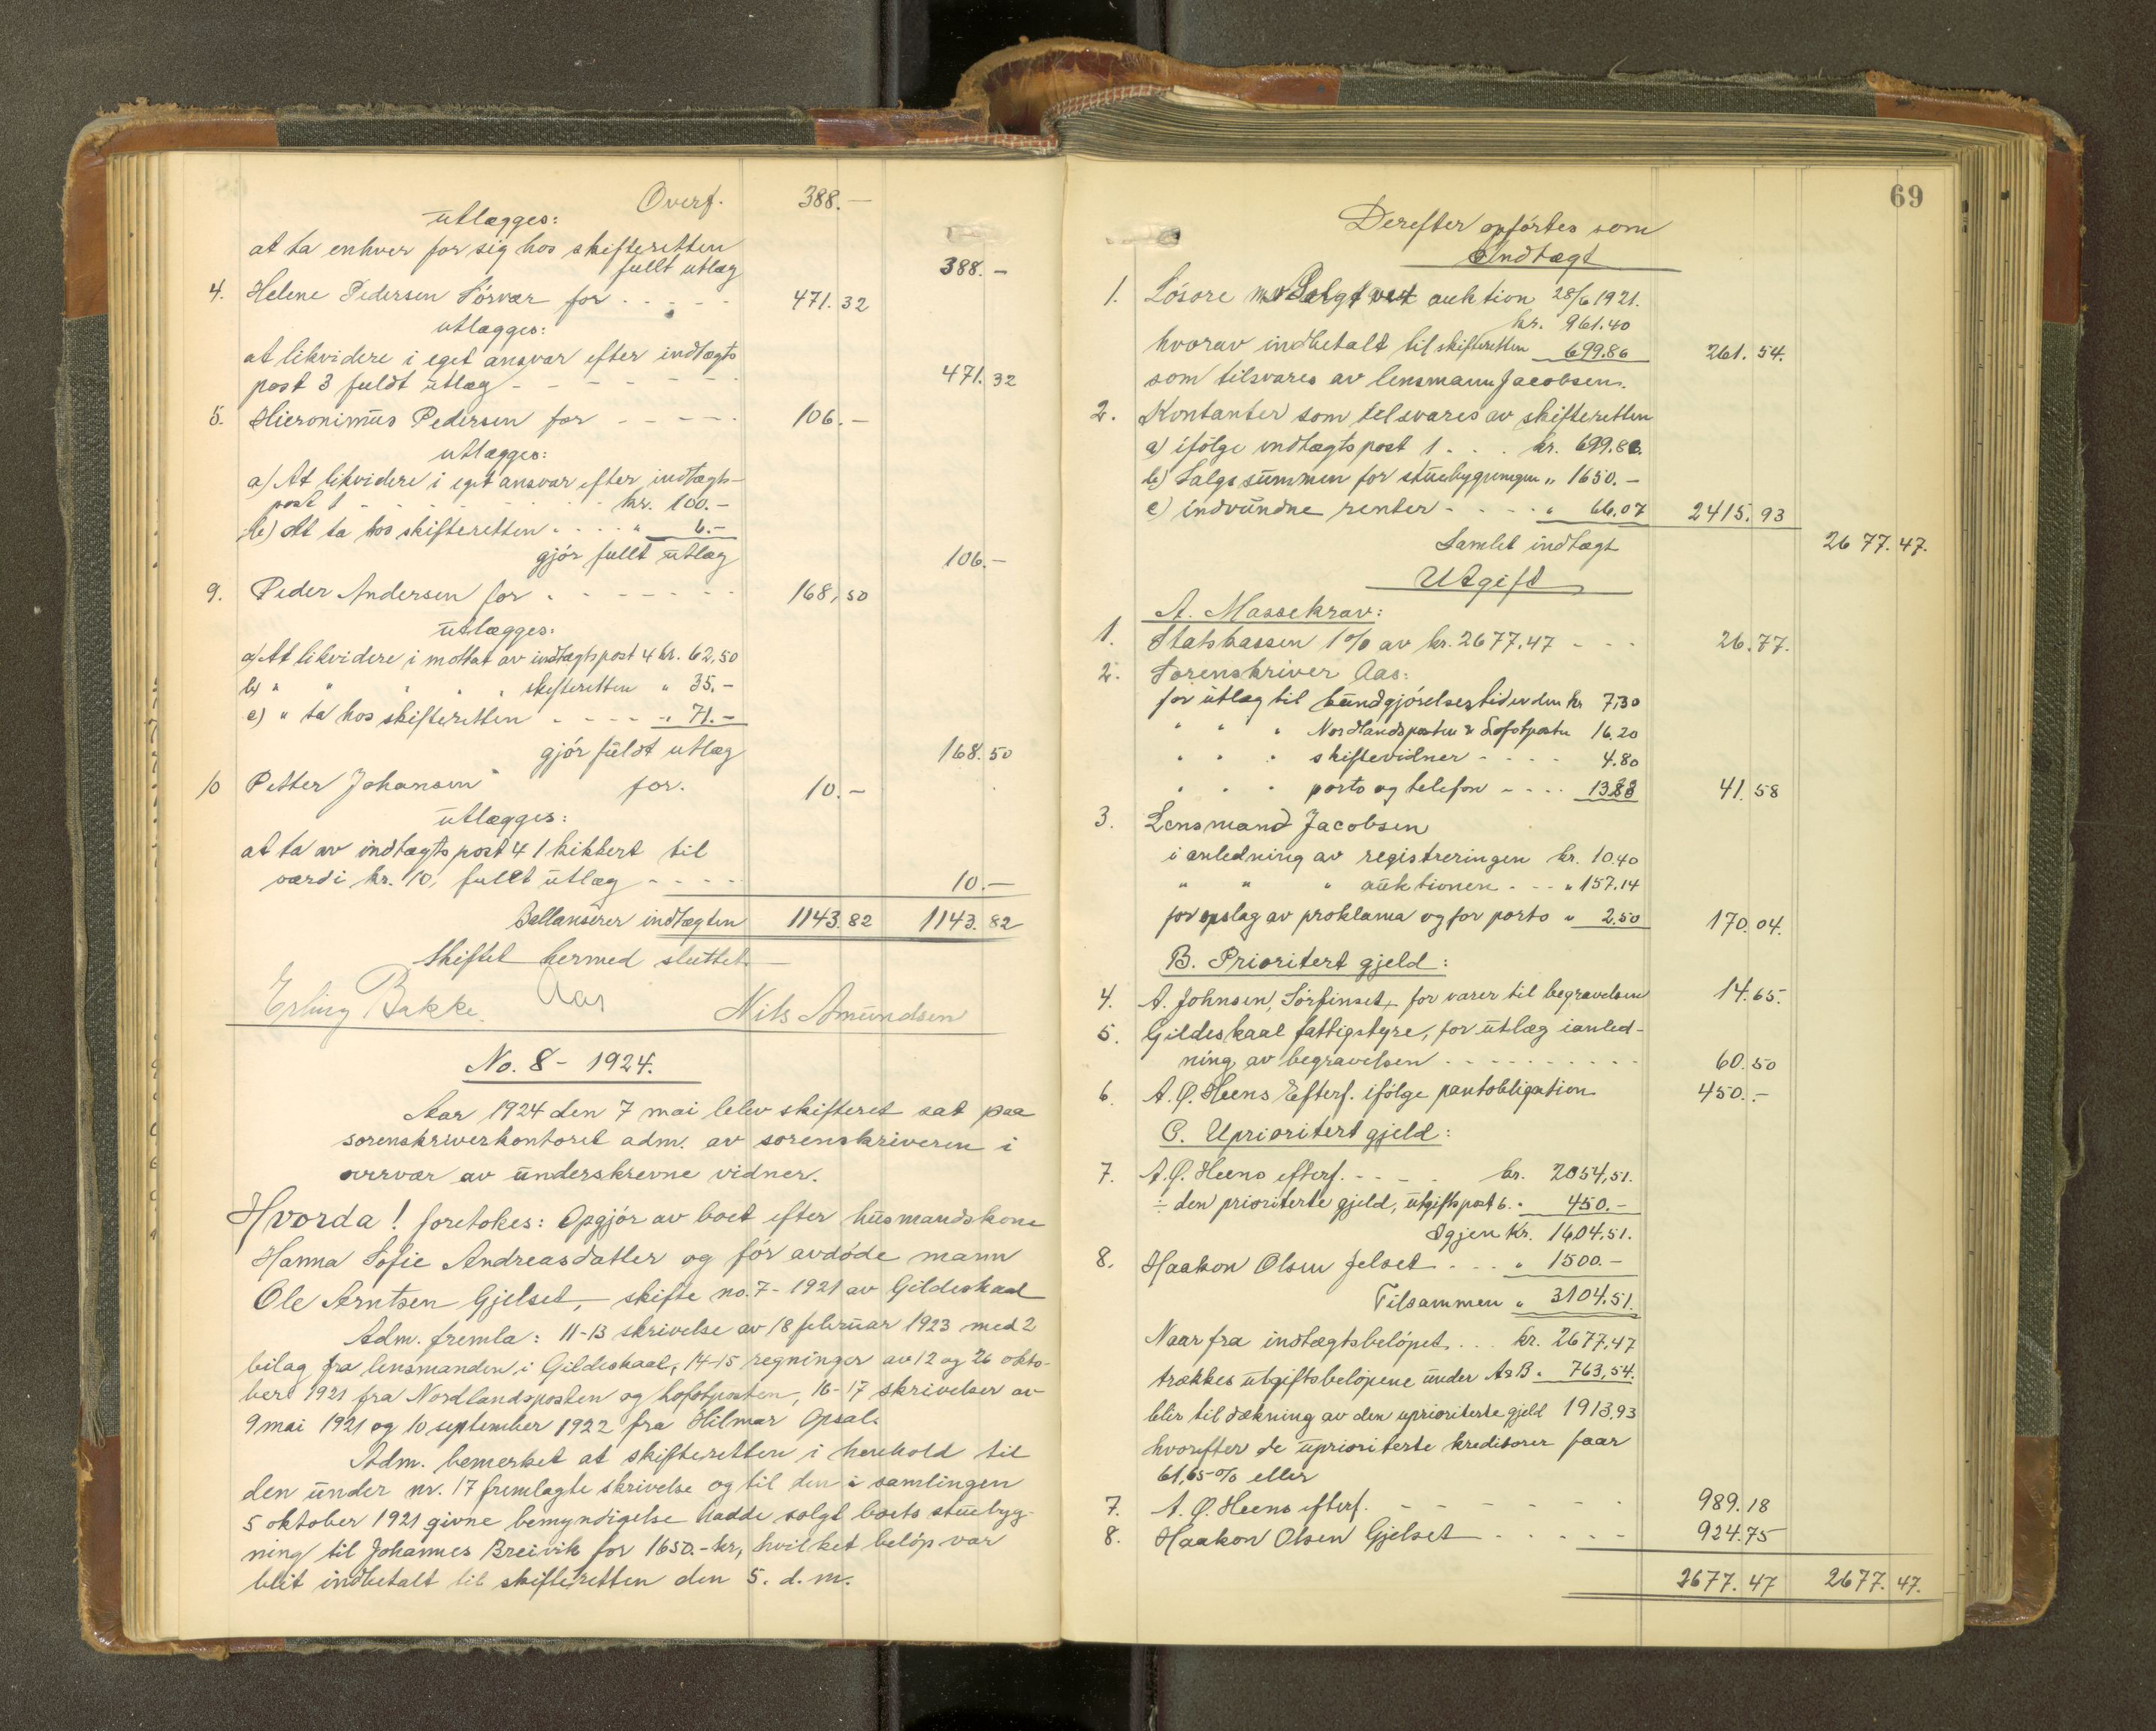 Overf. 388.-
utlægges:
at ta enhver for sig hos skifteretten
fullt utlæg 388.-
4. Helene Pedersen Sørvær for - - - - 471.32
utlægges:
at likvidere i eget ansvar efter indtægts
post 3 fuldt utlæg - - - - - - 471.32
5. Hieronimus Pedersen for - - - - 106.-
utlægges:
a) At likvidere i eget ansvar efter indtægts-
post 1 - - - - - kr. 100.-
b) At ta hos skifteretten - - - - " 6.-
gjør fullt utlæg 106.-
9. Peder Andersen for - - - - - - 168,50
utlægges:
a) At likvidere i mottat av indtægtspost 4 kr. 62,50
b) " " " " " skifteretten " 35.-
c) " ta hos skifteretten - - - - " 71.-
gjør fuldt utlæg 168.50
10 Petter Johansen for. 10.-
utlægges:
at ta av indtægts post 4 1 kikkert til
værdi kr. 10, fullt utlæg - - - - 10.-
Ballanserer indtægten 1143.82 1143.82
Skiftet hermed sluttet.
Erling Bakke. Aas Nils Amundsen
No. 8 - 1924.
Aar 1924 den 7 mai blev skifteret sat paa
sorenskriverkontoret adm. av sorenskriveren i
ovrvær av underskrevne vidner.
Hvorda! foretokes: Opgjør av boet efter husmandskone
Hanna Sofie Andreasdatter og før avdøde mann
Ole Arntsen Gjelset, - skifte no. 7 - 1921 av Gildeskaal
Adm. fremla: 11-13 skrivelse av 18 februar 1923 med 2
bilag fra lensmanden i Gildeskaal, 14-15 regninger av 12 og 26 okto-
ber 1921 fra Nordlandsposten og Lofotposten, 16-17 skrivelser av
9 mai 1921 og 10 september 1922 fra Hilmar Opsal.
Adm. bemerket at skifteretten i henhold til
den under nr. 17 fremlagte skrivelse og til den i samlingen
5 oktober 1921 givne bemyndigelse hadde solgt boets stuebyg-
ning til Johannes Breivik for 1650.- kr, hvilket beløp var
blit indbetalt til skifteretten den 5. d. m.
69
Derefter opførtes som
Indtægt
1. Løsøre m.v. Solgt ved auktion 28/6 1921.
kr. 961.40
hvorav indbetalt til skifteretten 699.86 261.54.
som tilsvares av lensmann Jacobsen.
2. Kontanter som tilsvares av skifteretten
a) ifølge indtægts post 1 . . . kr. 699.86.
b) Salgssummen for stuebygningen " 1650.-
c) indvundne renter - - - - " 66.07 2415.93
Samlet indtægt 2677.47.
Utgift
A. Massekrav:
1. Statskassen 1% av kr. 2677.47 - - - 26.77.
2. Sorenskriver Aas:
for utlæg til kundgjørelsestidenden kr 7,30
" " " Nordlandsposten & Lofotposten 16.20
" " " skiftevidner - - - - 4.80
" " " porto og telefon - - - - 13.28 41.58
3. Lensmand Jacobsen
i anledning av registreringen kr. 10.40
" " " auktionen - - - " 157.14
for opslag av proklama og for porto " 2,50 170.04.
B. Prioritert gjeld:
4. A. Johnsen, Sørfinset, for varer til begravelsen 14.65.
5. Gildeskaal fattigstyre, for utlæg i anled-
ning av begravelsen - - - - - - - - - 60.50
6. A. Q. Heens Efterf. ifølge pantobligation 450.-
C. Uprioritert gjeld:
7. A. Q. Heens efterf. - - - - kr. 2054,51.
÷ den prioriterte gjeld, utgiftspost 6. " 450.-
Igjen kr. 1604,51.
8. Haakon Olsen Jelset - - - " 1500.-
Tilsammen " 3104,51.
Naar fra indtægtsbeløpet . . . kr. 2677,47
trækkes utgiftsbeløpene under A & B " 763,54.
blir til dækning av den uprioriterte gjeld 1913,93
hvorefter de uprioriterte kreditorer faar
61,65 % eller
7. A. Q. Heens efterf. - - - - - - 989.18
8. Haakon Olsen Gjelset - - - - - 924.75
2677.47 2677.47.